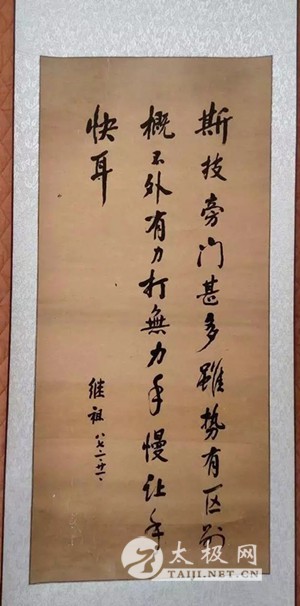 斯技旁门甚多虽势有区别
概不外有力打無力手慢让手
快耳
继祖 八七.二.廿一
太极网
TAIJI.NET.CN